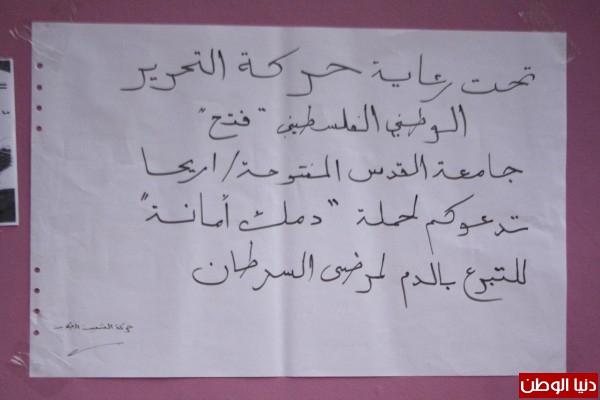 تحت رعاية حركة التحرير
الوطني الفلسطيني "فتح"
جامعة القدس المفتوحة/اريحا
تدعوكم لحملة "دمك أمانة"
للتبرع بالدم لمرضى السرطان
حركة الشبيبة
دنيا الوطن